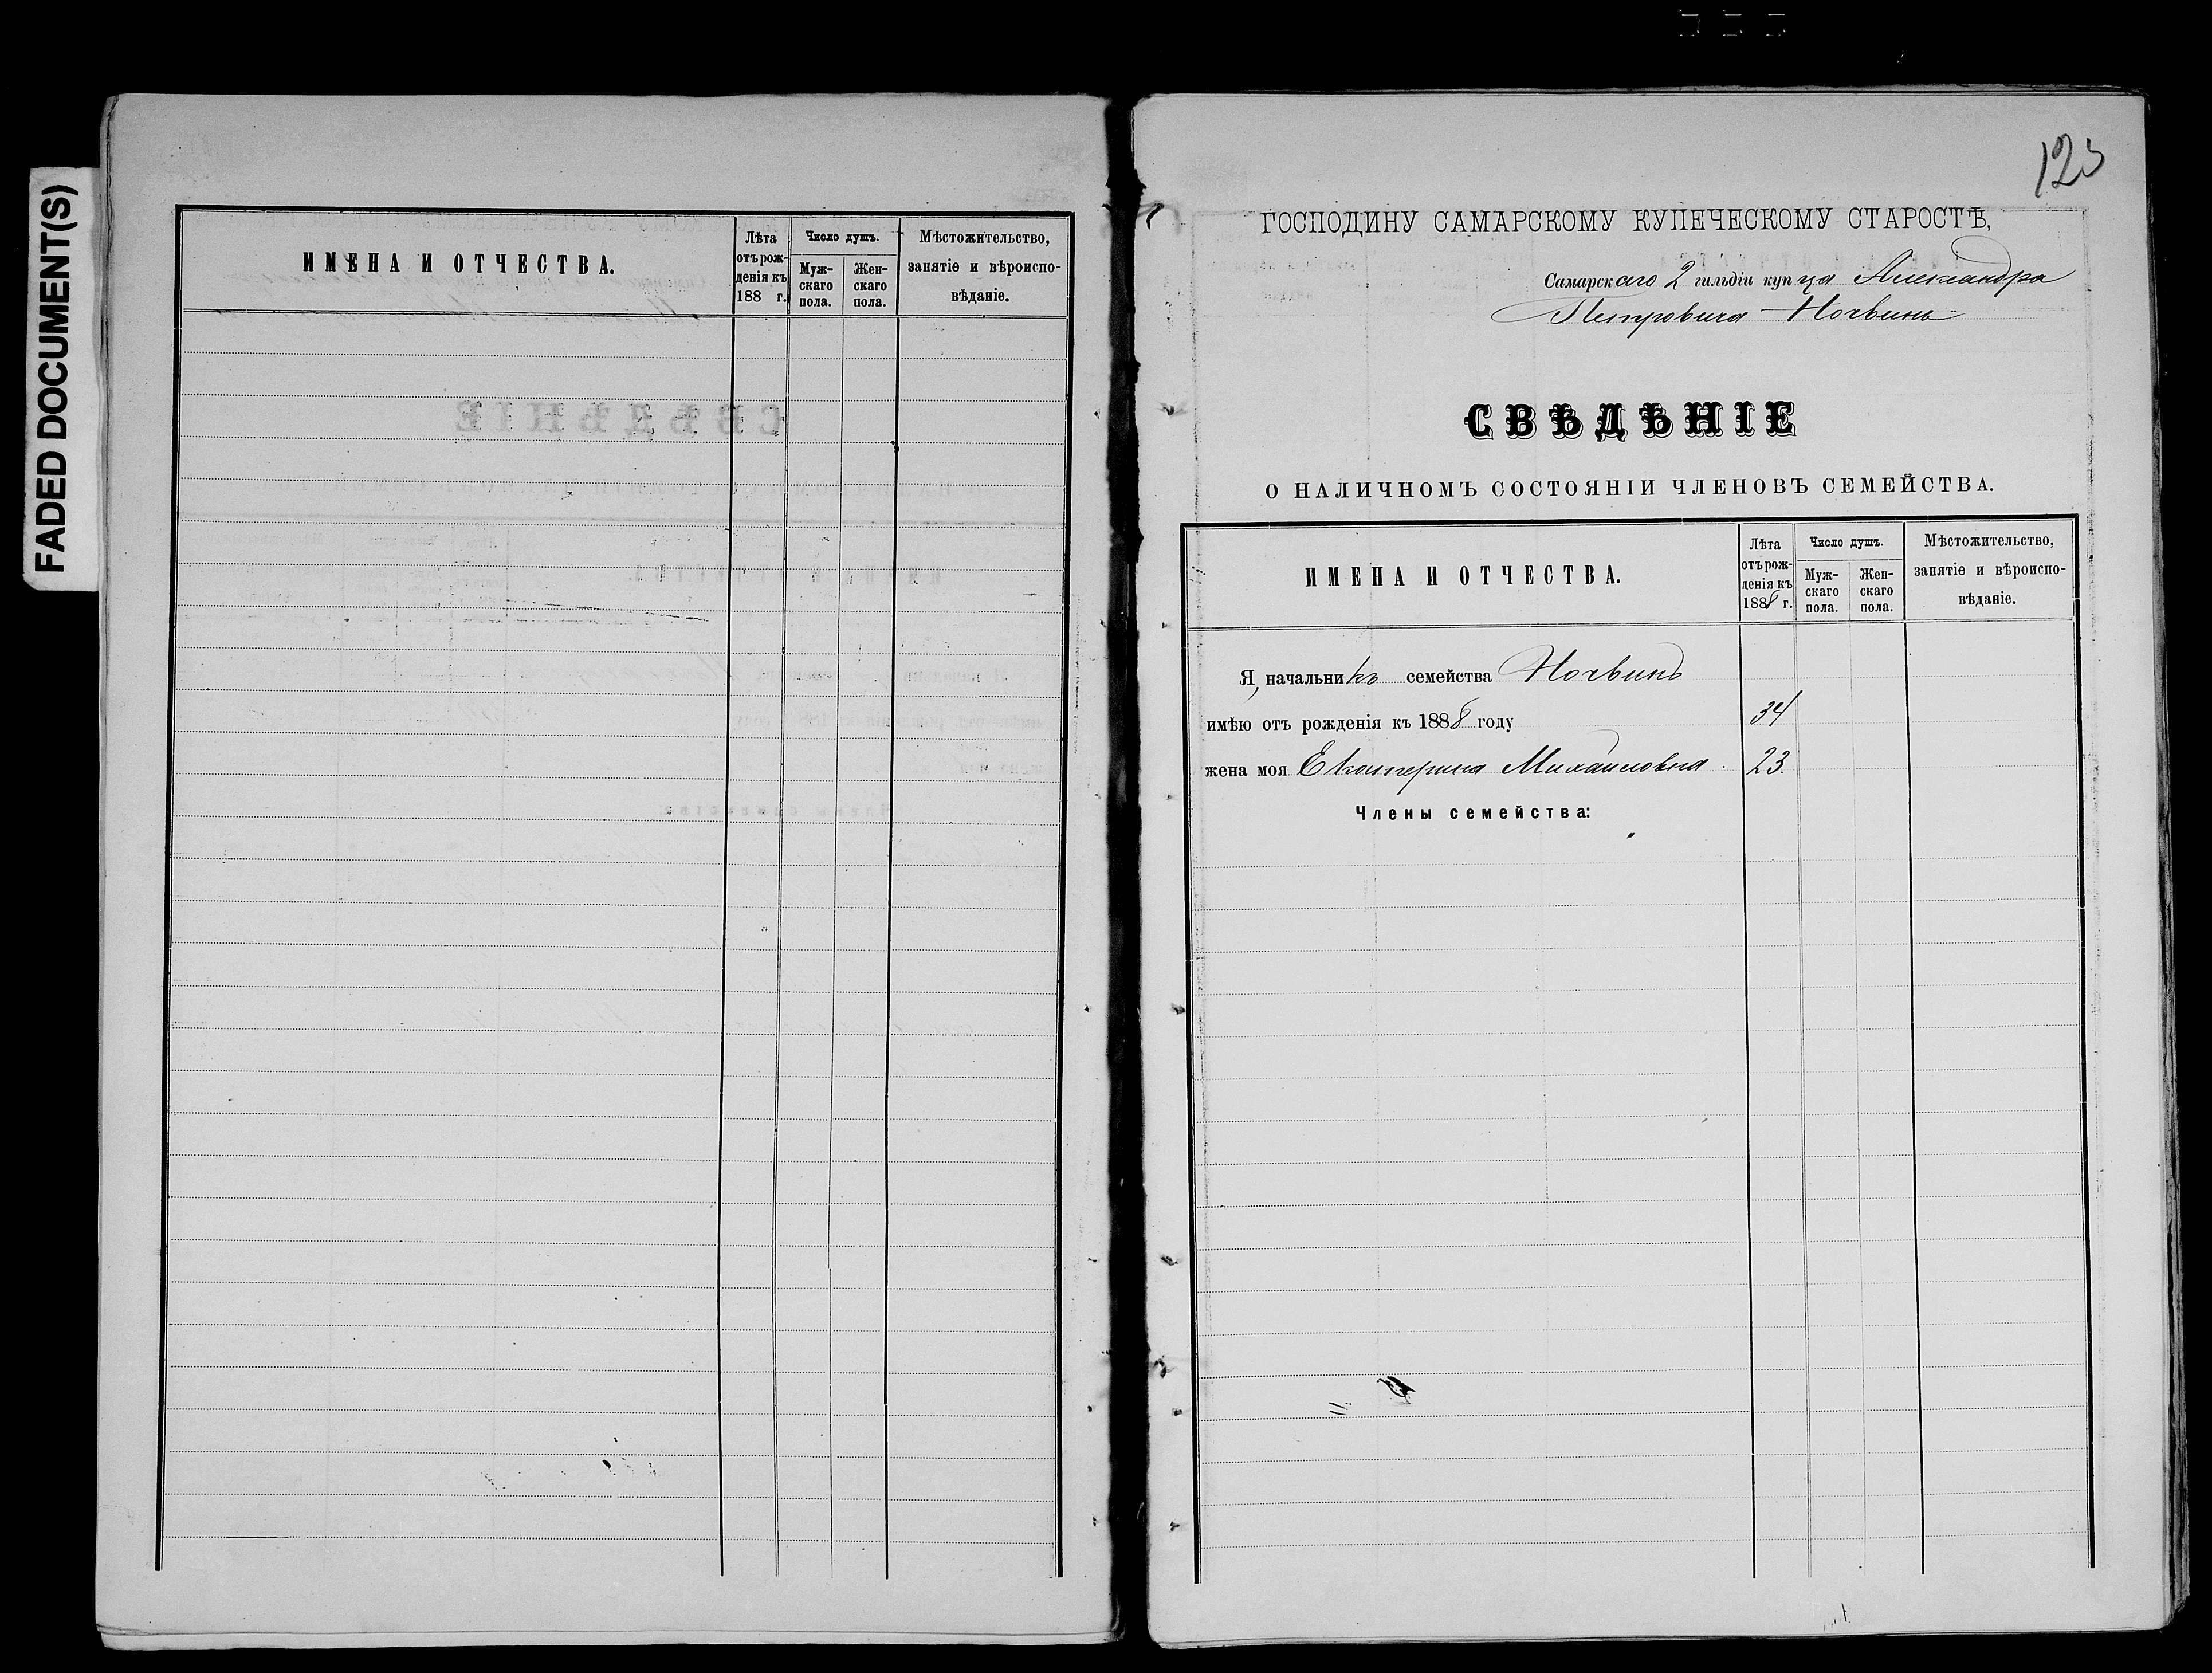 FADED DOCUMENT(S)
ИМЕНА И ОТЧЕСТВА.
Лѣта отъ рож-денія къ 188 г.
Число душъ.
Муж-скаго пола.
Жен-скаго пола.
Мѣстожительство, занятіе и вѣроиспо-вѣданіе.
123
ГОСПОДИНУ САМАРСКОМУ КУПЕЧЕСКОМУ СТАРОСТѢ,
Самарскаго 2 гильдіи купца Александра
Петровича
СВѢДѢНІЕ
О НАЛИЧНОМЪ СОСТОЯНІИ ЧЛЕНОВЪ СЕМЕЙСТВА.
ИМЕНА И ОТЧЕСТВА.
Лѣта отъ рож-денія къ 1888 г.
Число душъ.
Муж-скаго пола.
Жен-скаго пола.
Мѣстожительство, занятіе и вѣроиспо-вѣданіе.
Я, начальникъ семейства
имѣю отъ рожденія къ 1888 году 34
жена моя Екатерина Михайловна. 23.
Члены семейства: